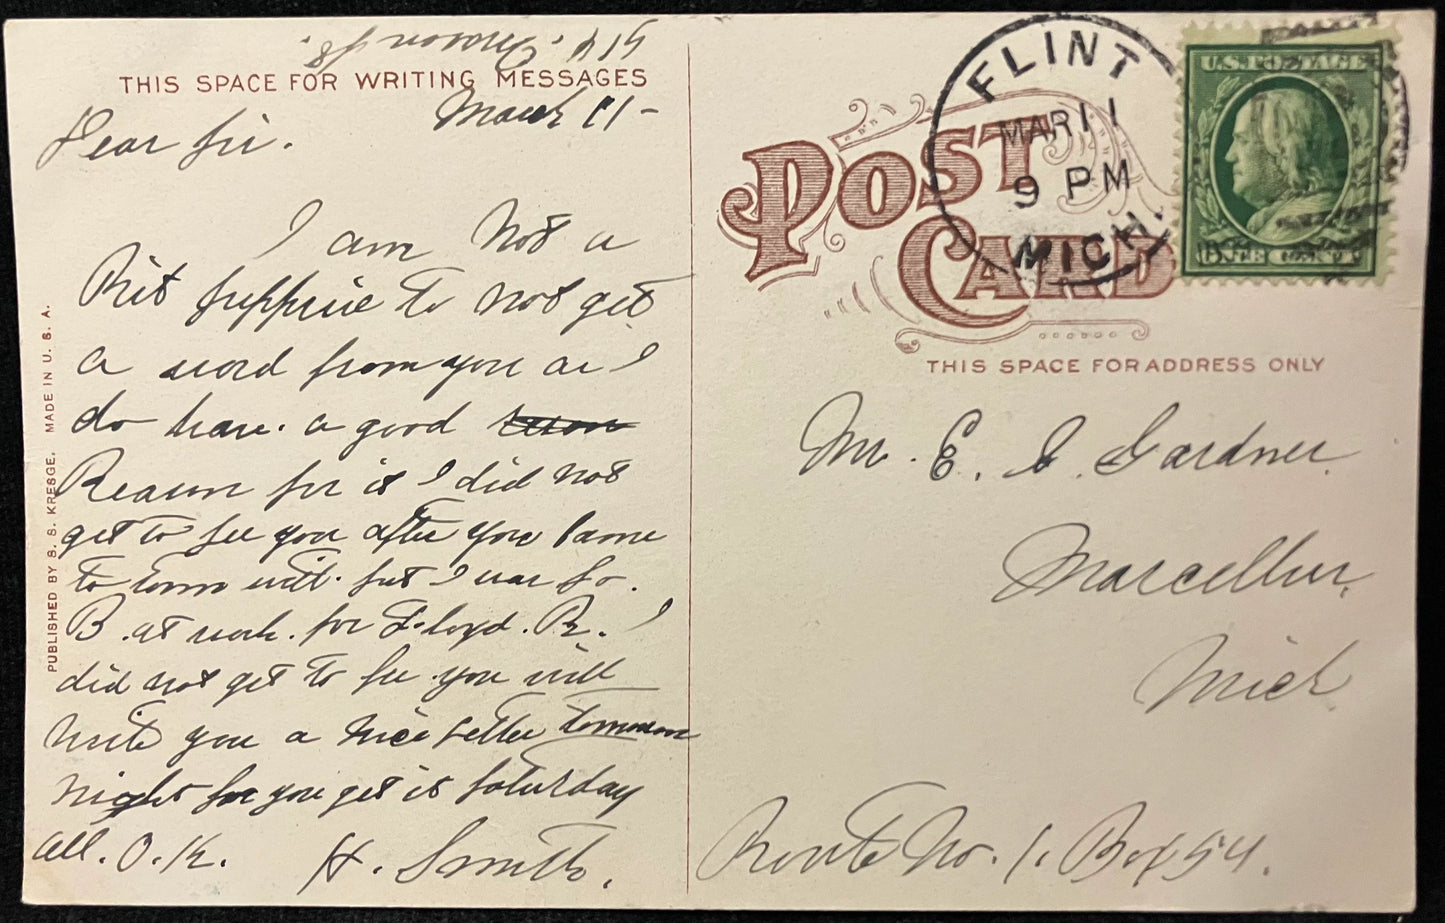 914.
THIS SPACE FOR WRITING MESSAGES
March 11-
Dear Sir.
I am Not a
Bit Supprise to not get
a word from you as I
do have. a good
Reason for it I did not
get to see you after you came
to town but I was so.
B. at work. for Floyd. R. I
did not get to see you will
write you a nice Letter tomorrow
night so you get it Saturday
all. O.K. H. Smith.
PUBLISHED BY S. S. KRESGE, MADE IN U. S. A.
POST CARD
THIS SPACE FOR ADDRESS ONLY
FLINT
MAR 11
9 PM
MICH.
U.S. POSTAGE
Mr. E. Gardner.
Marcellus,
Mich
Route No. 1. Box 54.